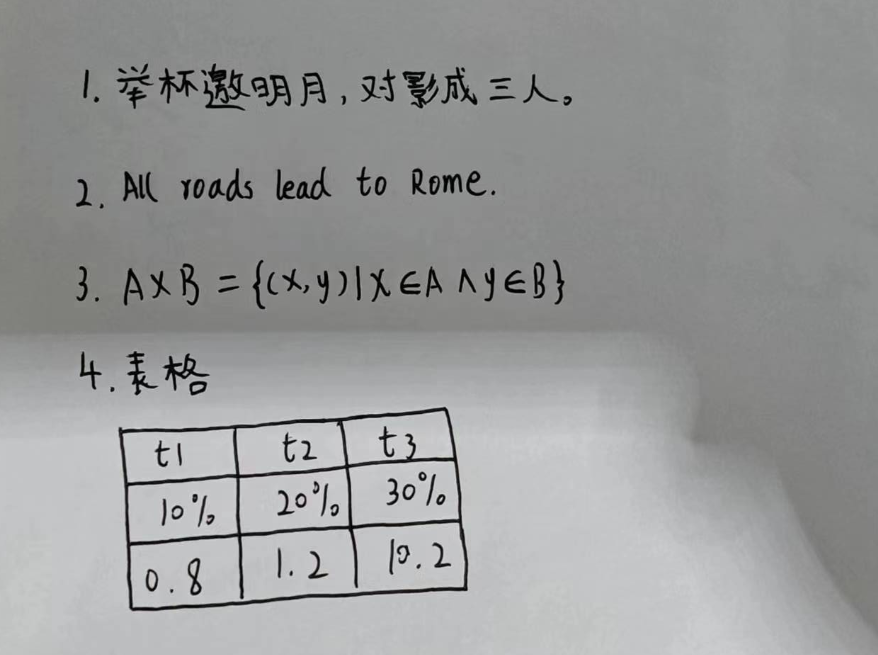 1. 举杯邀明月，对影成三人。
2. All roads lead to Rome.
3. A×B={(x,y)|x∈A∧y∈B}
4. 表格
t1 t2 t3
10% 20% 30%
0.8 1.2 10.2